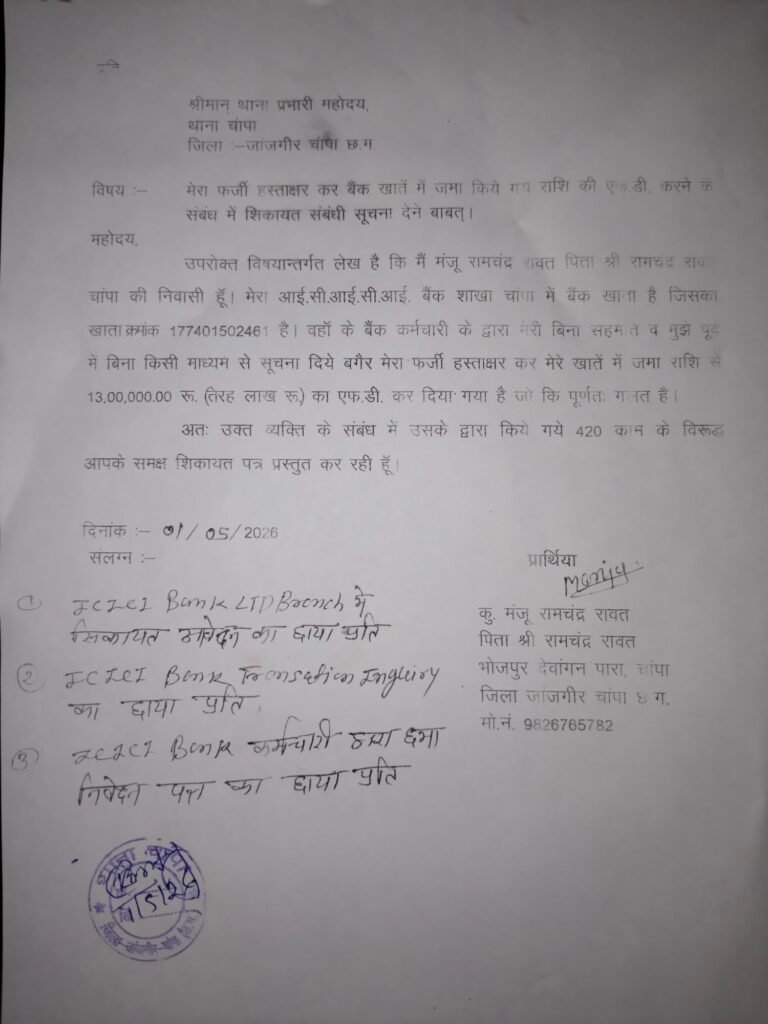 प्रति
श्रीमान् थाना प्रभारी महोदय,
थाना चांपा
जिला :–जांजगीर चांपा छ.ग
विषय :– मेरा फर्जी हस्ताक्षर कर बैंक खातें में जमा किये गये राशि की एफ.डी. करने के
संबंध में शिकायत संबंधी सूचना देने बाबत्।
महोदय,
उपरोक्त विषयान्तर्गत लेख है कि मैं मंजू रामचंद्र रावत पिता श्री रामचद्र रावत
चांपा की निवासी हूँ। मेरा आई.सी.आई.सी.आई. बैंक शाखा चांपा में बैंक खाता है जिसका
खाता क्रमांक 177401502461 है। वहॉ के बैंक कर्मचारी के द्वारा मेरी बिना सहमति व मुझे पूर्व
में बिना किसी माध्यम से सूचना दिये बगैर मेरा फर्जी हस्ताक्षर कर मेरे खातें में जमा राशि से
13,00,000.00 रू. (तेरह लाख रू.) का एफ.डी. कर दिया गया है जो कि पूर्णतः गलत है।
अतः उक्त व्यक्ति के संबंध में उसके द्वारा किये गये 420 काम के विरूद्ध
आपके समक्ष शिकायत पत्र प्रस्तुत कर रही हूँ।
दिनांक :– 01/05/2026
संलग्न :–
① ICICI Bank LTD Branch मे
सिकायत आवेदन का छाया प्रति
② ICICI Bank Transation Inguiry
का छाया प्रति,
③ ICICI Bank कर्मचारी द्वारा छमा
निवेदन पत्र का छाया प्रति
प्रार्थिया
Manju
कु. मंजू रामचंद्र रावत
पिता श्री रामचंद्र रावत
भोजपुर देवांगन पारा, चांपा
जिला जांजगीर चांपा छ ग.
मो.नं. 9826765782
थाना चांपा
जिला-जांजगीर-चांपा (छ.ग.)